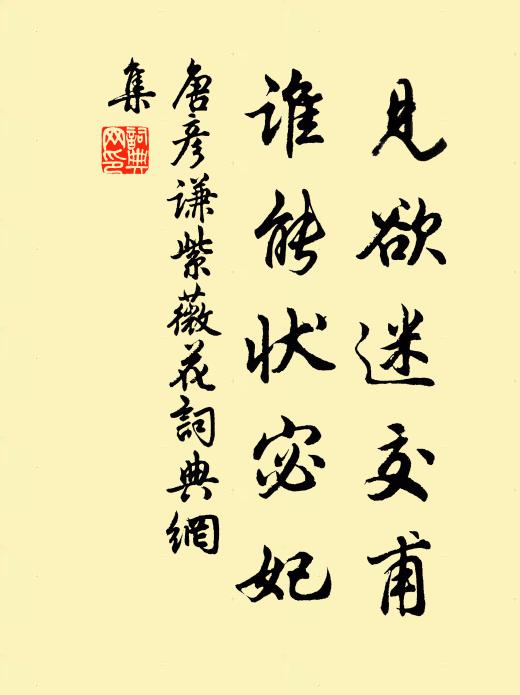 見欲迷交甫
誰能狀宓妃
唐彥謙紫薇花詞典網
集
詞典
网印